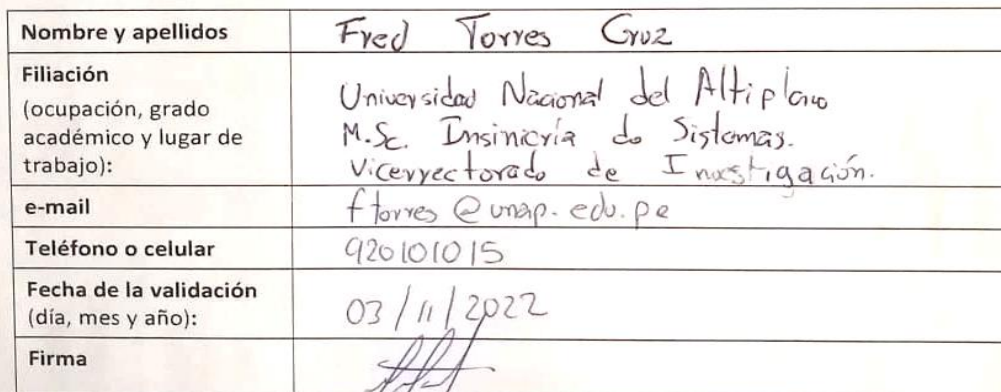 Nombre y apellidos
Fred Torres Cruz
Filiación
(ocupación, grado
académico y lugar de
trabajo):
Universidad Nacional del Altiplano
M.Sc. Insiniería de Sistemas.
Vicerrectorado de Investigación.
e-mail
ftorres@unap.edu.pe
Teléfono o celular
920101015
Fecha de la validación
(día, mes y año):
03/11/2022
Firma